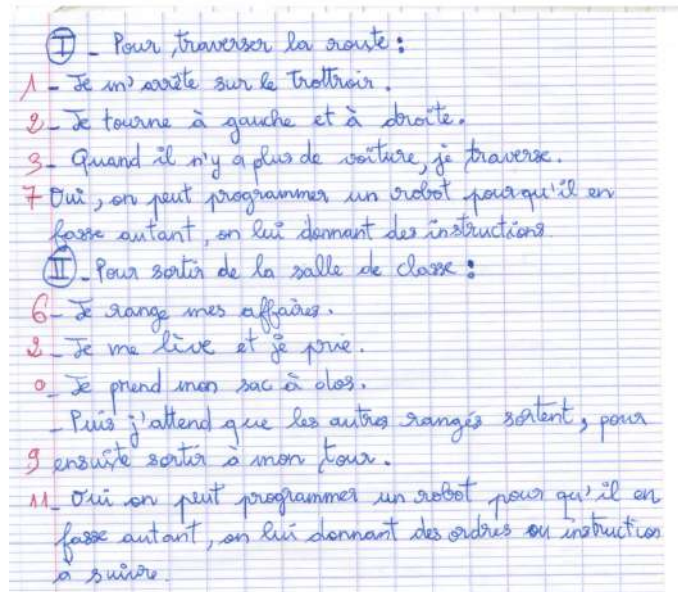 I - Pour traverser la route :
1 - Je m'arrête sur le trottroir.
2 - Je tourne à gauche et à droite.
3 - Quand il n'y a plus de voiture, je traverse.
7 Oui, on peut programmer un robot pourqu'il en
fasse autant, en lui donnant des instructions.
II - Pour sortir de la salle de classe :
6 - Je range mes affaires.
2 - Je me lève et je prie.
0 - Je prend mon sac à dos.
- Puis j'attend que les autres rangés sortent, pour
9 ensuite sortir à mon tour.
11 - Oui on peut programmer un robot pour qu'il en
fasse autant, en lui donnant des ordres ou instruction
à suivre.